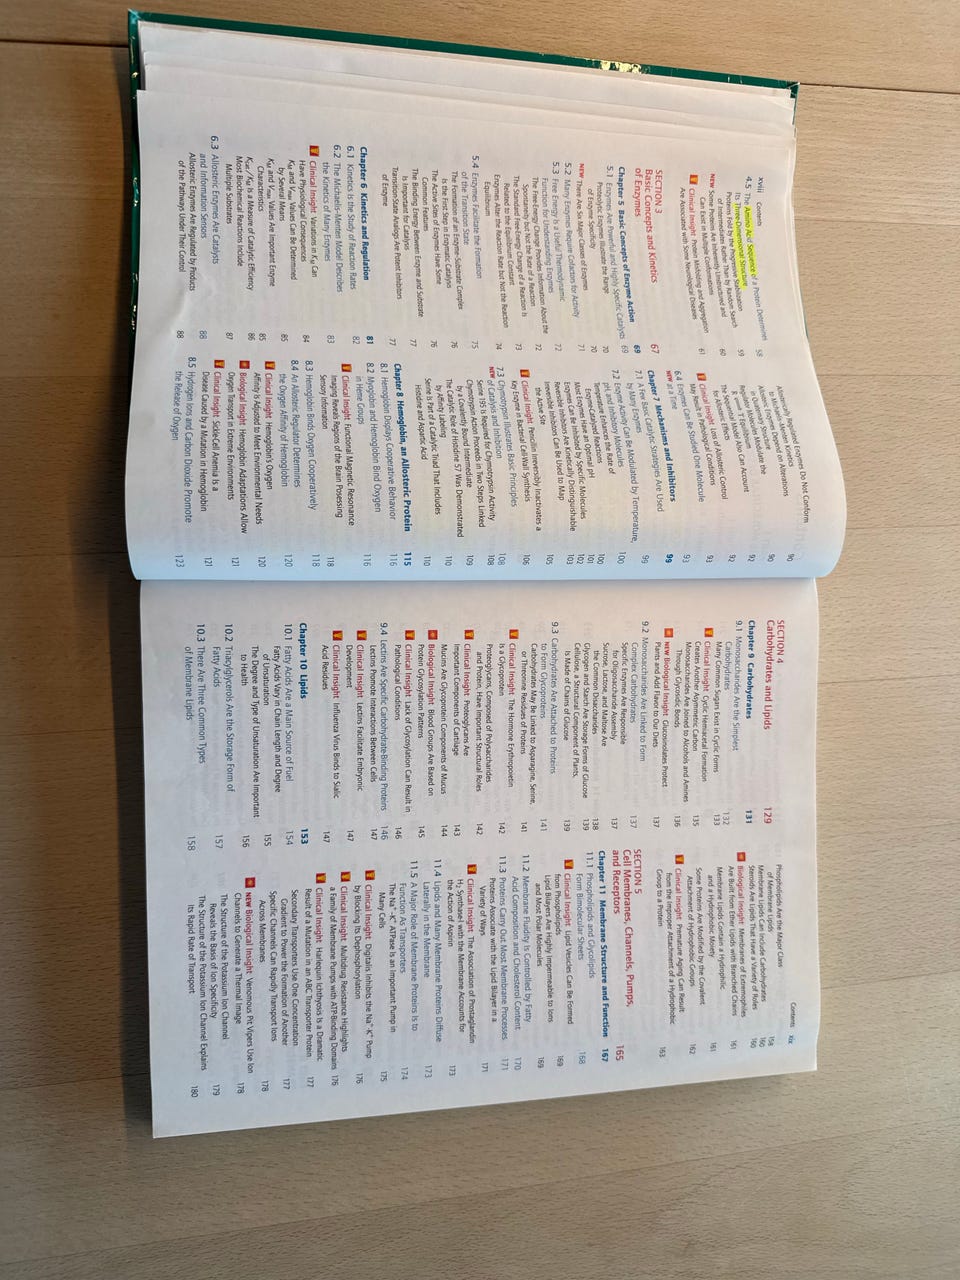 xviii Contents
4.5 The Amino Acid Sequence of a Protein Determines
Its Three-Dimensional Structure 58
Proteins Fold by the Progressive Stabilization
of Intermediates Rather Than by Random Search 59
NEW Some Proteins Are Inherently Unstructured and
Can Exist in Many Conformations 60
Clinical Insight Protein Misfolding and Aggregation
Are Associated with Some Neurological Diseases 61
SECTION 3
Basic Concepts and Kinetics
of Enzymes 67
Chapter 5 Basic Concepts of Enzyme Action 69
5.1 Enzymes Are Powerful and Highly Specific Catalysts 69
Proteolytic Enzymes Illustrate the Range
of Enzyme Specificity 70
NEW There Are Six Major Classes of Enzymes 70
5.2 Many Enzymes Require Cofactors for Activity 71
5.3 Free Energy Is a Useful Thermodynamic
Function for Understanding Enzymes 72
The Free-Energy Change Provides Information About the
Spontaneity but Not the Rate of a Reaction 72
The Standard Free-Energy Change of a Reaction Is
Related to the Equilibrium Constant 73
Enzymes Alter the Reaction Rate but Not the Reaction
Equilibrium 74
5.4 Enzymes Facilitate the Formation
of the Transition State 75
The Formation of an Enzyme–Substrate Complex
Is the First Step in Enzymatic Catalysis 76
The Active Sites of Enzymes Have Some
Common Features 76
The Binding Energy Between Enzyme and Substrate
Is Important for Catalysis 77
Transition-State Analogs Are Potent Inhibitors
of Enzyme 77
Chapter 6 Kinetics and Regulation 81
6.1 Kinetics Is the Study of Reaction Rates 82
6.2 The Michaelis–Menten Model Describes
the Kinetics of Many Enzymes 83
Clinical Insight Variations in KM Can
Have Physiological Consequences 84
KM and Vmax Values Can Be Determined
by Several Means 85
KM and Vmax Values Are Important Enzyme
Characteristics 85
Kcat/KM Is a Measure of Catalytic Efficiency 86
Most Biochemical Reactions Include
Multiple Substrates 87
6.3 Allosteric Enzymes Are Catalysts
and Information Sensors 88
Allosteric Enzymes Are Regulated by Products
of the Pathways Under Their Control 88
Allosterically Regulated Enzymes Do Not Conform
to Michaelis–Menten Kinetics 90
Allosteric Enzymes Depend on Alterations
in Quaternary Structure 90
Regulator Molecules Modulate the
R T Equilibrium 92
The Sequential Model Also Can Account
for Allosteric Effects 92
Clinical Insight Loss of Allosteric Control
May Result in Pathological Conditions 93
6.4 Enzymes Can Be Studied One Molecule
at a Time 93
Chapter 7 Mechanisms and Inhibitors 99
7.1 A Few Basic Catalytic Strategies Are Used
by Many Enzymes 99
7.2 Enzyme Activity Can Be Modulated by Temperature,
pH, and Inhibitory Molecules 100
Temperature Enhances the Rate of
Enzyme-Catalyzed Reactions 100
Most Enzymes Have an Optimal pH 101
Enzymes Can Be Inhibited by Specific Molecules 102
Reversible Inhibitors Are Kinetically Distinguishable 103
Irreversible Inhibitors Can Be Used to Map
the Active Site 105
Clinical Insight Penicillin Irreversibly Inactivates a
Key Enzyme in Bacterial Cell-Wall Synthesis 106
7.3 Chymotrypsin Illustrates Basic Principles
of Catalysis and Inhibition 108
NEW Serine 195 Is Required for Chymotrypsin Activity 108
Chymotrypsin Action Proceeds in Two Steps Linked
by a Covalently Bound Intermediate 109
The Catalytic Role of Histidine 57 Was Demonstrated
by Affinity Labeling 110
Serine Is Part of a Catalytic Triad That Includes
Histidine and Aspartic Acid 110
Chapter 8 Hemoglobin, an Allosteric Protein 115
8.1 Hemoglobin Displays Cooperative Behavior 116
8.2 Myoglobin and Hemoglobin Bind Oxygen
in Heme Groups 116
Clinical Insight Functional Magnetic Resonance
Imaging Reveals Regions of the Brain Processing
Sensory Information 118
8.3 Hemoglobin Binds Oxygen Cooperatively 118
8.4 An Allosteric Regulator Determines
the Oxygen Affinity of Hemoglobin 120
Clinical Insight Hemoglobin's Oxygen
Affinity Is Adjusted to Meet Environmental Needs 120
Biological Insight Hemoglobin Adaptations Allow
Oxygen Transport in Extreme Environments 121
Clinical Insight Sickle-Cell Anemia Is a
Disease Caused by a Mutation in Hemoglobin 121
8.5 Hydrogen Ions and Carbon Dioxide Promote
the Release of Oxygen 123
Contents xix
SECTION 4
Carbohydrates and Lipids 129
Chapter 9 Carbohydrates 131
9.1 Monosaccharides Are the Simplest
Carbohydrates 132
Many Common Sugars Exist in Cyclic Forms 133
Clinical Insight Cyclic Hemiacetal Formation
Creates Another Asymmetric Carbon 135
Monosaccharides Are Joined to Alcohols and Amines
Through Glycosidic Bonds 136
NEW Biological Insight Glucosinolates Protect
Plants and Add Flavor to Our Diets 137
9.2 Monosaccharides Are Linked to Form
Complex Carbohydrates 137
Specific Enzymes Are Responsible
for Oligosaccharide Assembly 137
Sucrose, Lactose, and Maltose Are
the Common Disaccharides 138
Glycogen and Starch Are Storage Forms of Glucose 139
Cellulose, a Structural Component of Plants,
Is Made of Chains of Glucose 139
9.3 Carbohydrates Are Attached to Proteins
to Form Glycoproteins 141
Carbohydrates May Be Linked to Asparagine, Serine,
or Threonine Residues of Proteins 141
Clinical Insight The Hormone Erythropoietin
Is a Glycoprotein 142
Proteoglycans, Composed of Polysaccharides
and Protein, Have Important Structural Roles 142
Clinical Insight Proteoglycans Are
Important Components of Cartilage 143
Mucins Are Glycoprotein Components of Mucus 144
Biological Insight Blood Groups Are Based on
Protein Glycosylation Patterns 145
Clinical Insight Lack of Glycosylation Can Result in
Pathological Conditions 146
9.4 Lectins Are Specific Carbohydrate-Binding Proteins 146
Lectins Promote Interactions Between Cells 147
Clinical Insight Lectins Facilitate Embryonic
Development 147
Clinical Insight Influenza Virus Binds to Sialic
Acid Residues 147
Chapter 10 Lipids 153
10.1 Fatty Acids Are a Main Source of Fuel 154
Fatty Acids Vary in Chain Length and Degree
of Unsaturation 155
The Degree and Type of Unsaturation Are Important
to Health 156
10.2 Triacylglycerols Are the Storage Form of
Fatty Acids 157
10.3 There Are Three Common Types
of Membrane Lipids 158
Phospholipids Are the Major Class
of Membrane Lipids 158
Membrane Lipids Can Include Carbohydrates 160
Steroids Are Lipids That Have a Variety of Roles 160
Biological Insight Membranes of Extremophiles
Are Built from Ether Lipids with Branched Chains 161
Membrane Lipids Contain a Hydrophilic
and a Hydrophobic Moiety 161
Some Proteins Are Modified by the Covalent
Attachment of Hydrophobic Groups 162
Clinical Insight Premature Aging Can Result
from the Improper Attachment of a Hydrophobic
Group to a Protein 163
SECTION 5
Cell Membranes, Channels, Pumps,
and Receptors 165
Chapter 11 Membrane Structure and Function 167
11.1 Phospholipids and Glycolipids
Form Bimolecular Sheets 168
Clinical Insight Lipid Vesicles Can Be Formed
from Phospholipids 169
Lipid Bilayers Are Highly Impermeable to Ions
and Most Polar Molecules 169
11.2 Membrane Fluidity Is Controlled by Fatty
Acid Composition and Cholesterol Content 170
11.3 Proteins Carry Out Most Membrane Processes 171
Proteins Associate with the Lipid Bilayer in a
Variety of Ways 171
Clinical Insight The Association of Prostaglandin
H2 Synthase-I with the Membrane Accounts for
the Action of Aspirin 173
11.4 Lipids and Many Membrane Proteins Diffuse
Laterally in the Membrane 173
11.5 A Major Role of Membrane Proteins Is to
Function As Transporters 174
The Na+–K+ ATPase Is an Important Pump in
Many Cells 175
Clinical Insight Digitalis Inhibits the Na+–K+ Pump
by Blocking Its Dephosphorylation 176
Clinical Insight Multidrug Resistance Highlights
a Family of Membrane Pumps with ATP-Binding Domains 176
Clinical Insight Harlequin Ichthyosis Is a Dramatic
Result of a Mutation in an ABC Transporter Protein 177
Secondary Transporters Use One Concentration
Gradient to Power the Formation of Another 177
Specific Channels Can Rapidly Transport Ions
Across Membranes 178
NEW Biological Insight Venomous Pit Vipers Use Ion
Channels to Generate a Thermal Image 178
The Structure of the Potassium Ion Channel
Reveals the Basis of Ion Specificity 179
The Structure of the Potassium Ion Channel Explains
Its Rapid Rate of Transport 180